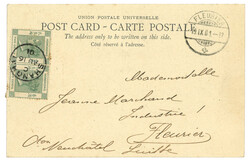 UNION POSTALE UNIVERSELLE
POST CARD - CARTE POSTALE
The address only to be written on this side.
Côté réservé à l'adresse.
FLEURIER
Mademoiselle
Jeanne Marchand
Industrie !
Fleurier
Neuchâtel Suisse